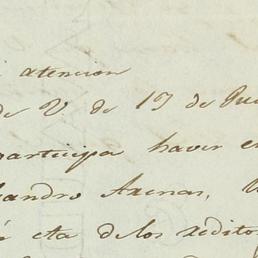 atencion
de V. de 17 de
participa haver
Arenas,
é cta de los reditos